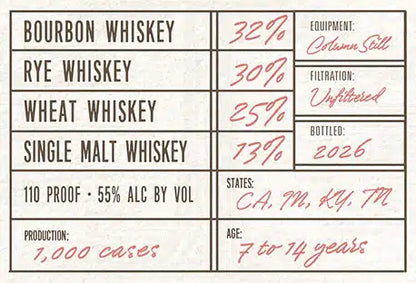 BOURBON WHISKEY 32%
RYE WHISKEY 30%
WHEAT WHISKEY 25%
SINGLE MALT WHISKEY 13%
EQUIPMENT:
Column Still
FILTRATION:
Unfiltered
BOTTLED:
2026
110 PROOF · 55% ALC BY VOL
STATES:
CA, IN, KY, TN
PRODUCTION:
1,000 cases
AGE:
7 to 14 years